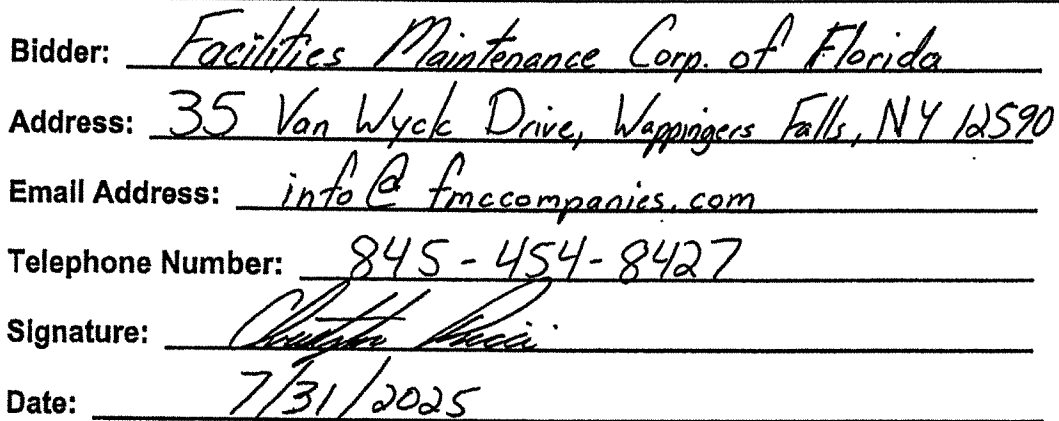 Bidder: Facilities Maintenance Corp. of Florida
Address: 35 Van Wyck Drive, Wappingers Falls, NY 12590
Email Address: info@fmccompanies.com
Telephone Number: 845-454-8427
Signature:
Date: 7/31/2025